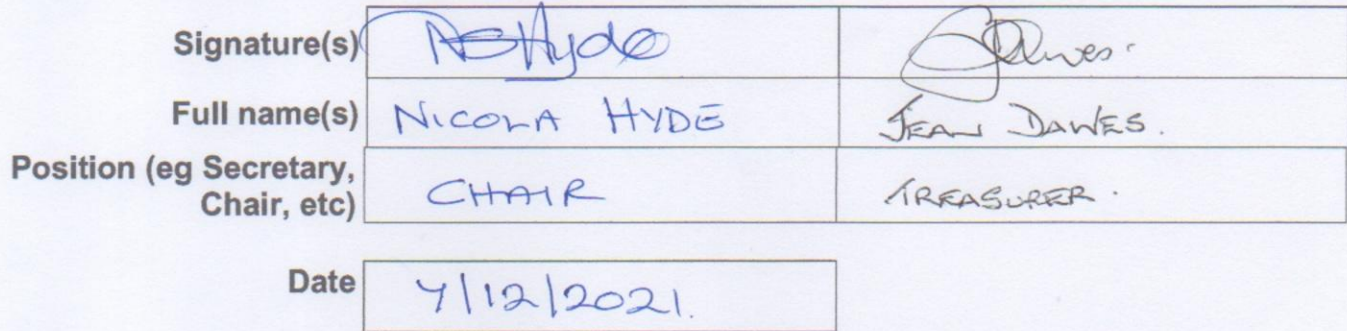 Signature(s) Hyde
Full name(s) NICOLA HYDE JEAN DAWES.
Position (eg Secretary, Chair, etc) CHAIR TREASURER.
Date /12/2021.